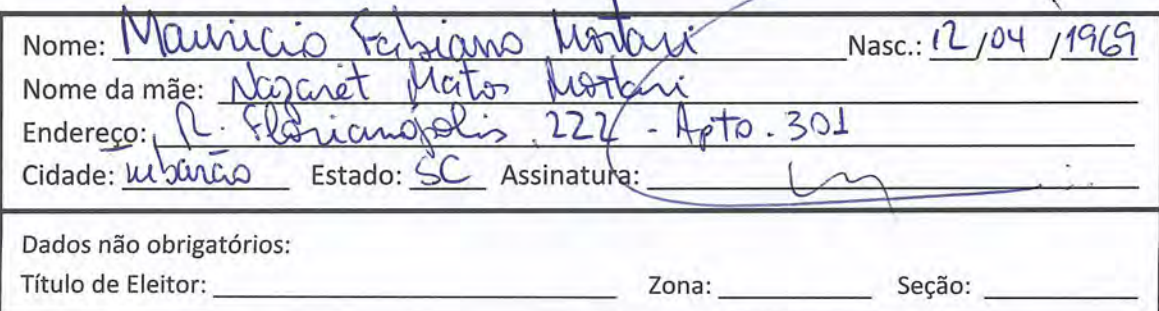 Nome: Mauricio Fabiano Mortari Nasc.: 12/04/1969
Nome da mãe: Nazaret Matos Mortari
Endereço: R. Florianópolis, 222 - Apto. 301
Cidade: Tubarão Estado: SC Assinatura:
Dados não obrigatórios:
Título de Eleitor: Zona: Seção: